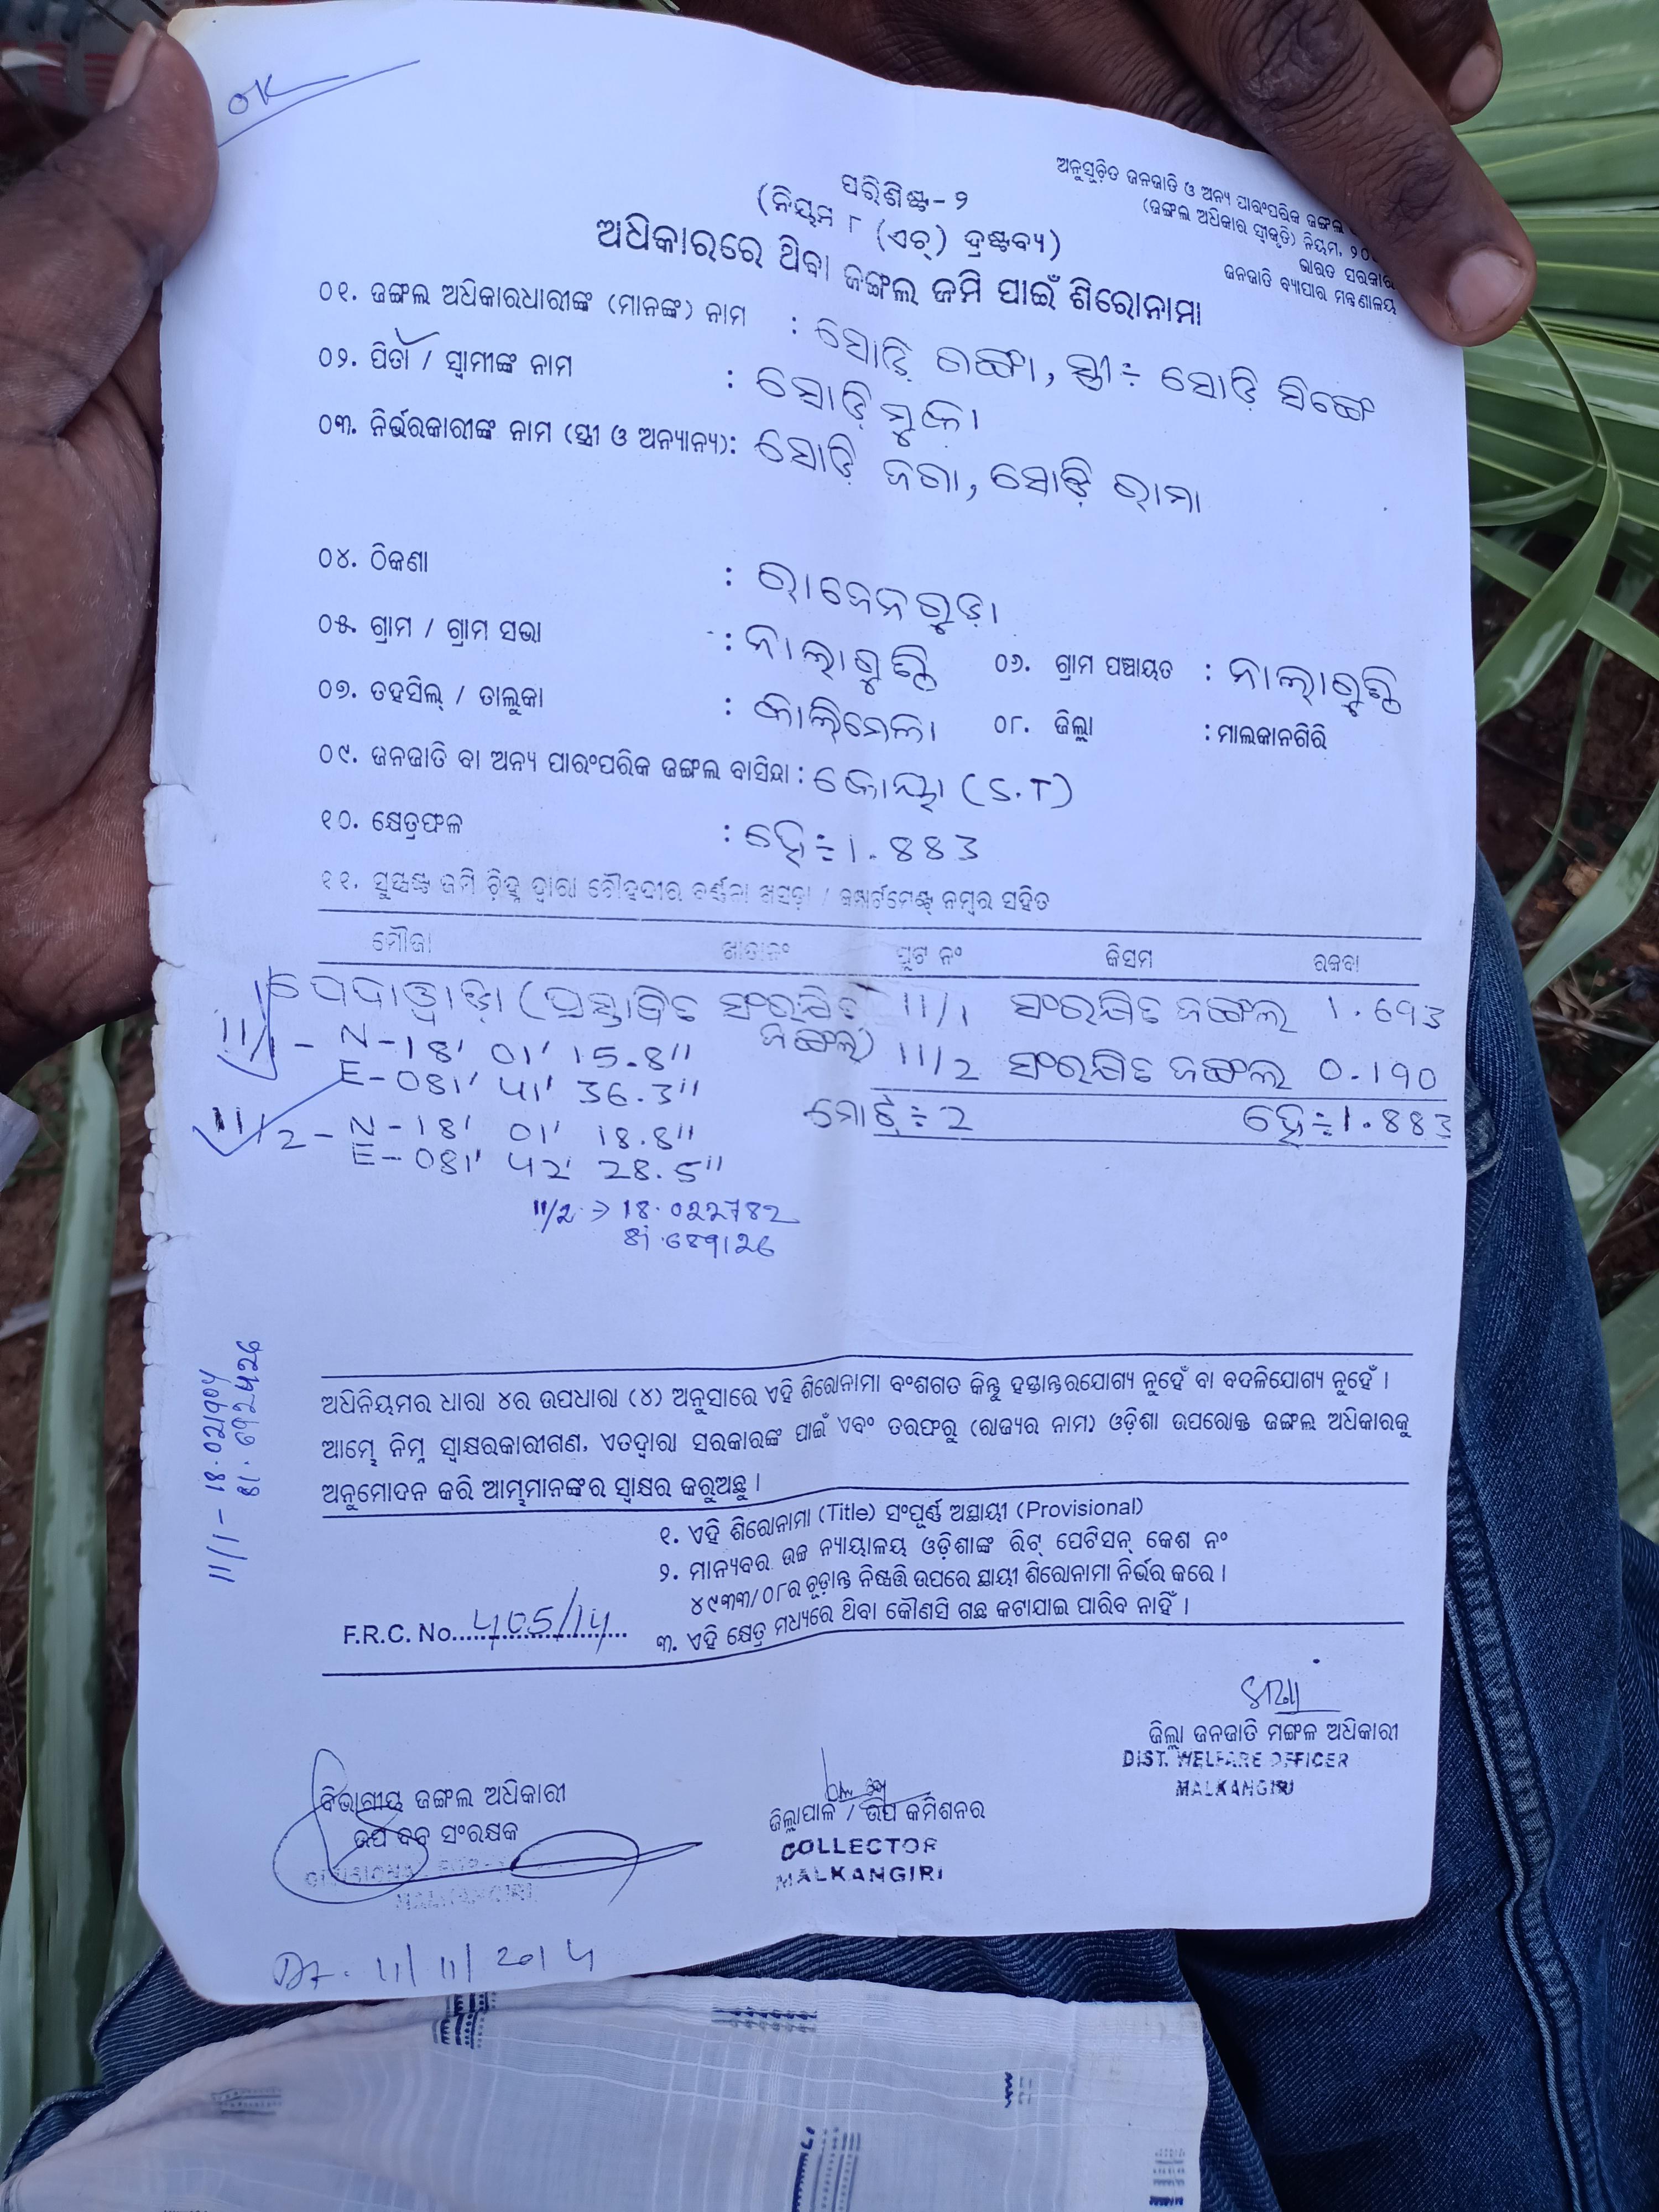 OK
ଅନୁସୂଚିତ ଜନଜାତି ଓ ଅନ୍ୟ ପାରଂପରିକ ଜଙ୍ଗଲ
(ଜଙ୍ଗଲ ଅଧିକାର ସ୍ୱୀକୃତି) ନିୟମ, ୨୦
ଭାରତ ସରକାର
ଜନଜାତି ବ୍ୟାପାର ମନ୍ତ୍ରଣାଳୟ
ପରିଶିଷ୍ଟ - ୨
(ନିୟମ ୮ (ଏଚ୍) ଦ୍ରଷ୍ଟବ୍ୟ)
ଅଧିକାରରେ ଥିବା ଜଙ୍ଗଲ ଜମି ପାଇଁ ଶିରୋନାମା
୦୧. ଜଙ୍ଗଲ ଅଧିକାରଧାରୀଙ୍କ (ମାନଙ୍କ) ନାମ : ସୋଡ଼ି ଗଙ୍ଗା, ସ୍ତ୍ରୀ ÷ ସୋଡ଼ି ସିଙ୍ଗେ
୦୨. ପିତା / ସ୍ୱାମୀଙ୍କ ନାମ : ସୋଡ଼ି ମୁକା
୦୩. ନିର୍ଭରକାରୀଙ୍କ ନାମ (ସ୍ତ୍ରୀ ଓ ଅନ୍ୟାନ୍ୟ): ସୋଡ଼ି ଜଗା, ସୋଡ଼ି ରାମା
୦୪. ଠିକଣା : ରାଜେନଗୁଡ଼ା
୦୫. ଗ୍ରାମ / ଗ୍ରାମ ସଭା : ନାଲାଗୁଣ୍ଠି ୦୬. ଗ୍ରାମ ପଞ୍ଚାୟତ : ନାଲାଗୁଣ୍ଠି
୦୭. ତହସିଲ୍ / ତାଲୁକା : କାଲିମେଲା ୦୮. ଜିଲ୍ଲା : ମାଲକାନଗିରି
୦୯. ଜନଜାତି ବା ଅନ୍ୟ ପାରଂପରିକ ଜଙ୍ଗଲ ବାସିନ୍ଦା : କୋୟା (S.T)
୧୦. କ୍ଷେତ୍ରଫଳ : ହେ ÷ 1.883
୧୧. ସୁସ୍ପଷ୍ଟ ଜମି ଚିହ୍ନ ଦ୍ୱାରା ଚୌହଦୀର ବର୍ଣ୍ଣନା ଖସଡ଼ା / କମ୍ପାର୍ଟମେଣ୍ଟ୍ ନମ୍ବର ସହିତ
ମୌଜା ଖାତାନଂ ପ୍ଲଟ ନଂ କିସମ ରକବା
(ପ୍ରସ୍ତାବିତ ସଂରକ୍ଷିତ 11/1 ସଂରକ୍ଷିତ ଜଙ୍ଗଲ 1.693
ଜଙ୍ଗଲ) 11/2 ସଂରକ୍ଷିତ ଜଙ୍ଗଲ 0.190
11/1 - N-18' 01' 15.8"
E-081' 41' 36.3"
ମୋଟ ÷ 2 ହେ ÷ 1.883
11/2 - N-18' 01' 18.8"
E-081' 42' 28.5"
11/2 -> 18.022782
81.689126
11/1 - 18.021904
81.692426
ଅଧିନିୟମର ଧାରା ୪ର ଉପଧାରା (୪) ଅନୁସାରେ ଏହି ଶିରୋନାମା ବଂଶଗତ କିନ୍ତୁ ହସ୍ତାନ୍ତରଯୋଗ୍ୟ ନୁହେଁ ବା ବଦଳିଯୋଗ୍ୟ ନୁହେଁ ।
ଆମ୍ଭେ ନିମ୍ନ ସ୍ୱାକ୍ଷରକାରୀଗଣ, ଏତଦ୍ୱାରା ସରକାରଙ୍କ ପାଇଁ ଏବଂ ତରଫରୁ (ରାଜ୍ୟର ନାମ) ଓଡ଼ିଶା ଉପରୋକ୍ତ ଜଙ୍ଗଲ ଅଧିକାରକୁ
ଅନୁମୋଦନ କରି ଆମ୍ଭମାନଙ୍କର ସ୍ୱାକ୍ଷର କରୁଅଛୁ ।
୧. ଏହି ଶିରୋନାମା (Title) ସଂପୂର୍ଣ୍ଣ ଅସ୍ଥାୟୀ (Provisional)
୨. ମାନ୍ୟବର ଉଚ୍ଚ ନ୍ୟାୟାଳୟ ଓଡ଼ିଶାଙ୍କ ରିଟ୍ ପେଟିସନ୍ କେଶ ନଂ
୪୯୩୩/୦୮ର ଚୂଡ଼ାନ୍ତ ନିଷ୍ପତ୍ତି ଉପରେ ସ୍ଥାୟୀ ଶିରୋନାମା ନିର୍ଭର କରେ ।
F.R.C. No. 405/14
୩. ଏହି କ୍ଷେତ୍ର ମଧ୍ୟରେ ଥିବା କୌଣସି ଗଛ କଟାଯାଇ ପାରିବ ନାହିଁ ।
ଜିଲ୍ଲା ଜନଜାତି ମଙ୍ଗଳ ଅଧିକାରୀ
DIST. WELFARE OFFICER
MALKANGIRI
ବିଭାଗୀୟ ଜଙ୍ଗଲ ଅଧିକାରୀ
ଉପ ବନ ସଂରକ୍ଷକ
ଜିଲ୍ଲାପାଳ / ଉପ କମିଶନର
COLLECTOR
MALKANGIRI
DIVISIONAL
MALKANGIRI
Dt. 11/11/2014